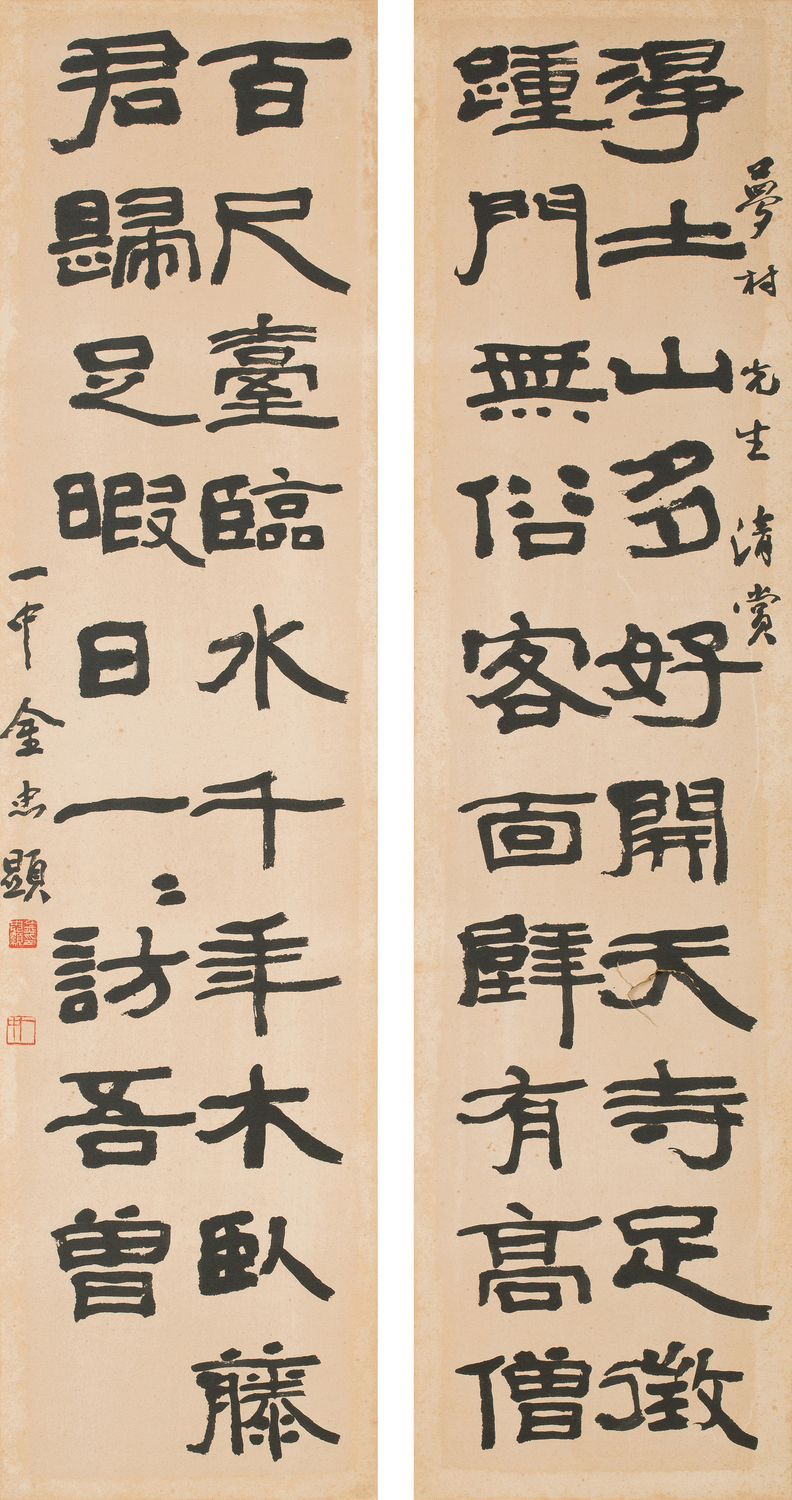 夢村先生清賞
淨土山多好開天寺足徵
踵門無俗客面壁有高僧
百尺臺臨水千年木臥藤
君歸足暇日一〻訪吾曾
一中金忠顯
一中